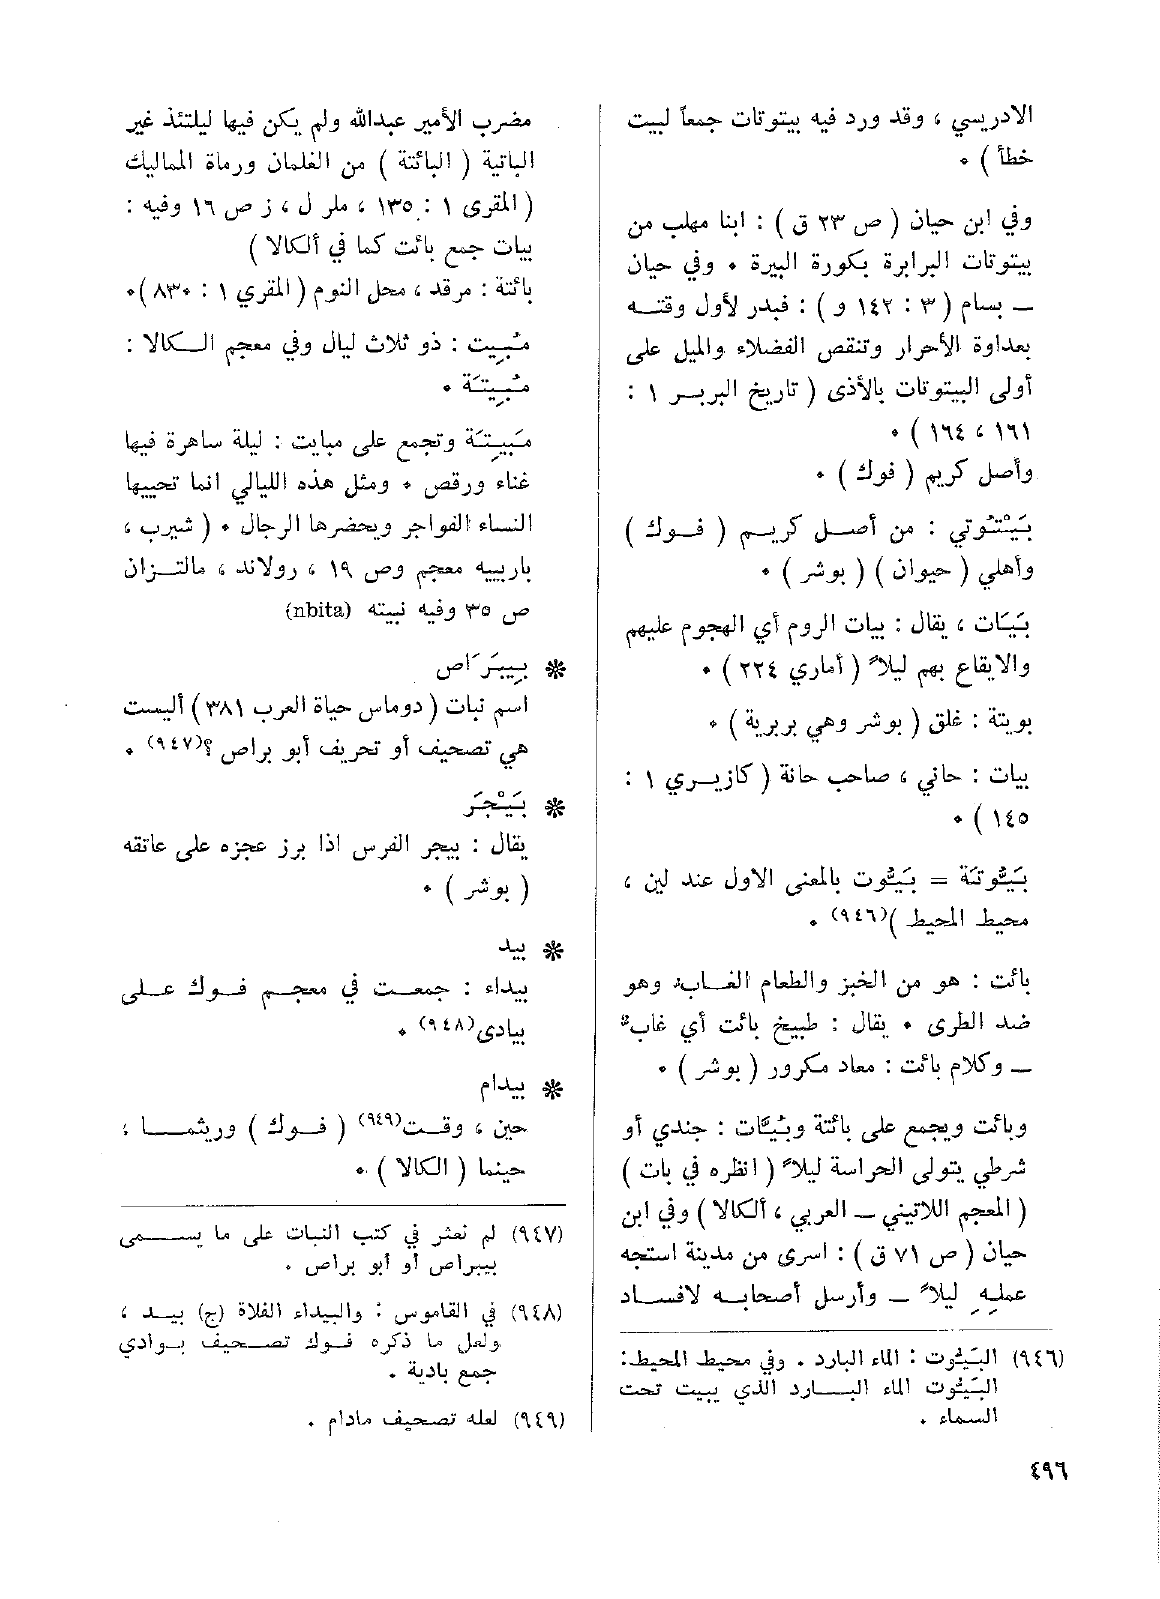 الادريسي ، وقد ورد فيه بيتوتات جمعاً لبيت
خطأ ) .
وفي ابن حيان ( ص ٢٣ ق ) : ابنا مهلب من
بيتوتات البرابرة بكورة البيرة . وفي حيان
— بسام ( ٣ : ١٤٢ و ) : فبدر لأول وقتــه
بعداوة الأحرار وتنقص الفضلاء والميل على
أولى البيتوتات بالأذى ( تاريخ البربــر ١ :
١٦١ ، ١٦٤ ) .
وأصل كريم ( فوك ) .
بَيْتُوتي : من أصــل كريــم ( فــوك )
وأهلي ( حيوان ) ( بوشر ) .
بَيَات ، يقال : بيات الروم أي الهجوم عليهم
والايقاع بهم ليلاً ( أماري ٢٢٤ ) .
بويتة : غلق ( بوشر وهي بربرية ) .
بيات : حاني ، صاحب حانة ( كازيــري ١ :
١٤٥ ) .
بَيُّوتَة = بَيُّوت بالمعنى الاول عند لين ،
محيط المحيط )(٩٤٦) .
بائت : هو من الخبز والطعام الغــاب وهو
ضد الطرى . يقال : طبيخ بائت أي غاب
— وكلام بائت : معاد مكرور ( بوشر ) .
وبائت ويجمع على بائتة وبُيَّات : جندي أو
شرطي يتولى الحراسة ليلاً ( انظره في بات )
( المعجم اللاتيني — العربي ، ألكالا ) وفي ابن
حيان ( ص ٧١ ق ) : اسرى من مدينة استجه
عمله ليلاً — وأرسل أصحابــه لافســاد
(٩٤٦) البَيُّوت : الماء البارد . وفي محيط المحيط:
البَيُّوت الماء البــارد الذي يبيت تحت
السماء .
٤٩٦
مضرب الأمير عبدالله ولم يكن فيها ليلتئذ غير
الباتية ( البائتة ) من الغلمان ورماة المماليك
( المقرى ١ : ١٣٥ ، ملر ل ، ز ص ١٦ وفيه :
بيات جمع بائت كما في ألكالا )
بائتة : مرقد ، محل النوم ( المقري ١ : ٨٣٠ ).
مُبِيت : ذو ثلاث ليال وفي معجم الــكالا :
مُبِيتَة .
مَبِيتَة وتجمع على مبايت : ليلة ساهرة فيها
غناء ورقص . ومثل هذه الليالي انما تحييها
النساء الفواجر ويحضرها الرجال . ( شيرب ،
باربييه معجم وص ١٩ ، رولاند ، مالتــزان
ص ٣٥ وفيه نبيته (nbita)
* بِيبَرَاص
اسم نبات ( دوماس حياة العرب ٣٨١ ) أليست
هي تصحيف أو تحريف أبو براص ؟(٩٤٧) .
* بَيْجَر
يقال : بيجر الفرس اذا برز عجزه على عاتقه
( بوشر ) .
* بيد
بيداء : جمعــت في معجــم فــوك علــى
بيادى(٩٤٨) .
* بيدام
حين ، وقــت(٩٤٩) ( فــوك ) وريثمــا ،
حينما ( الكالا ) .
(٩٤٧) لم نعثر في كتب النبات على ما يســمى
بيبراص أو أبو براص .
(٩٤٨) في القاموس : والبيداء الفلاة (ج) بيــد ،
ولعل ما ذكره فــوك تصــحيف بــوادي
جمع بادية .
(٩٤٩) لعله تصحيف مادام .